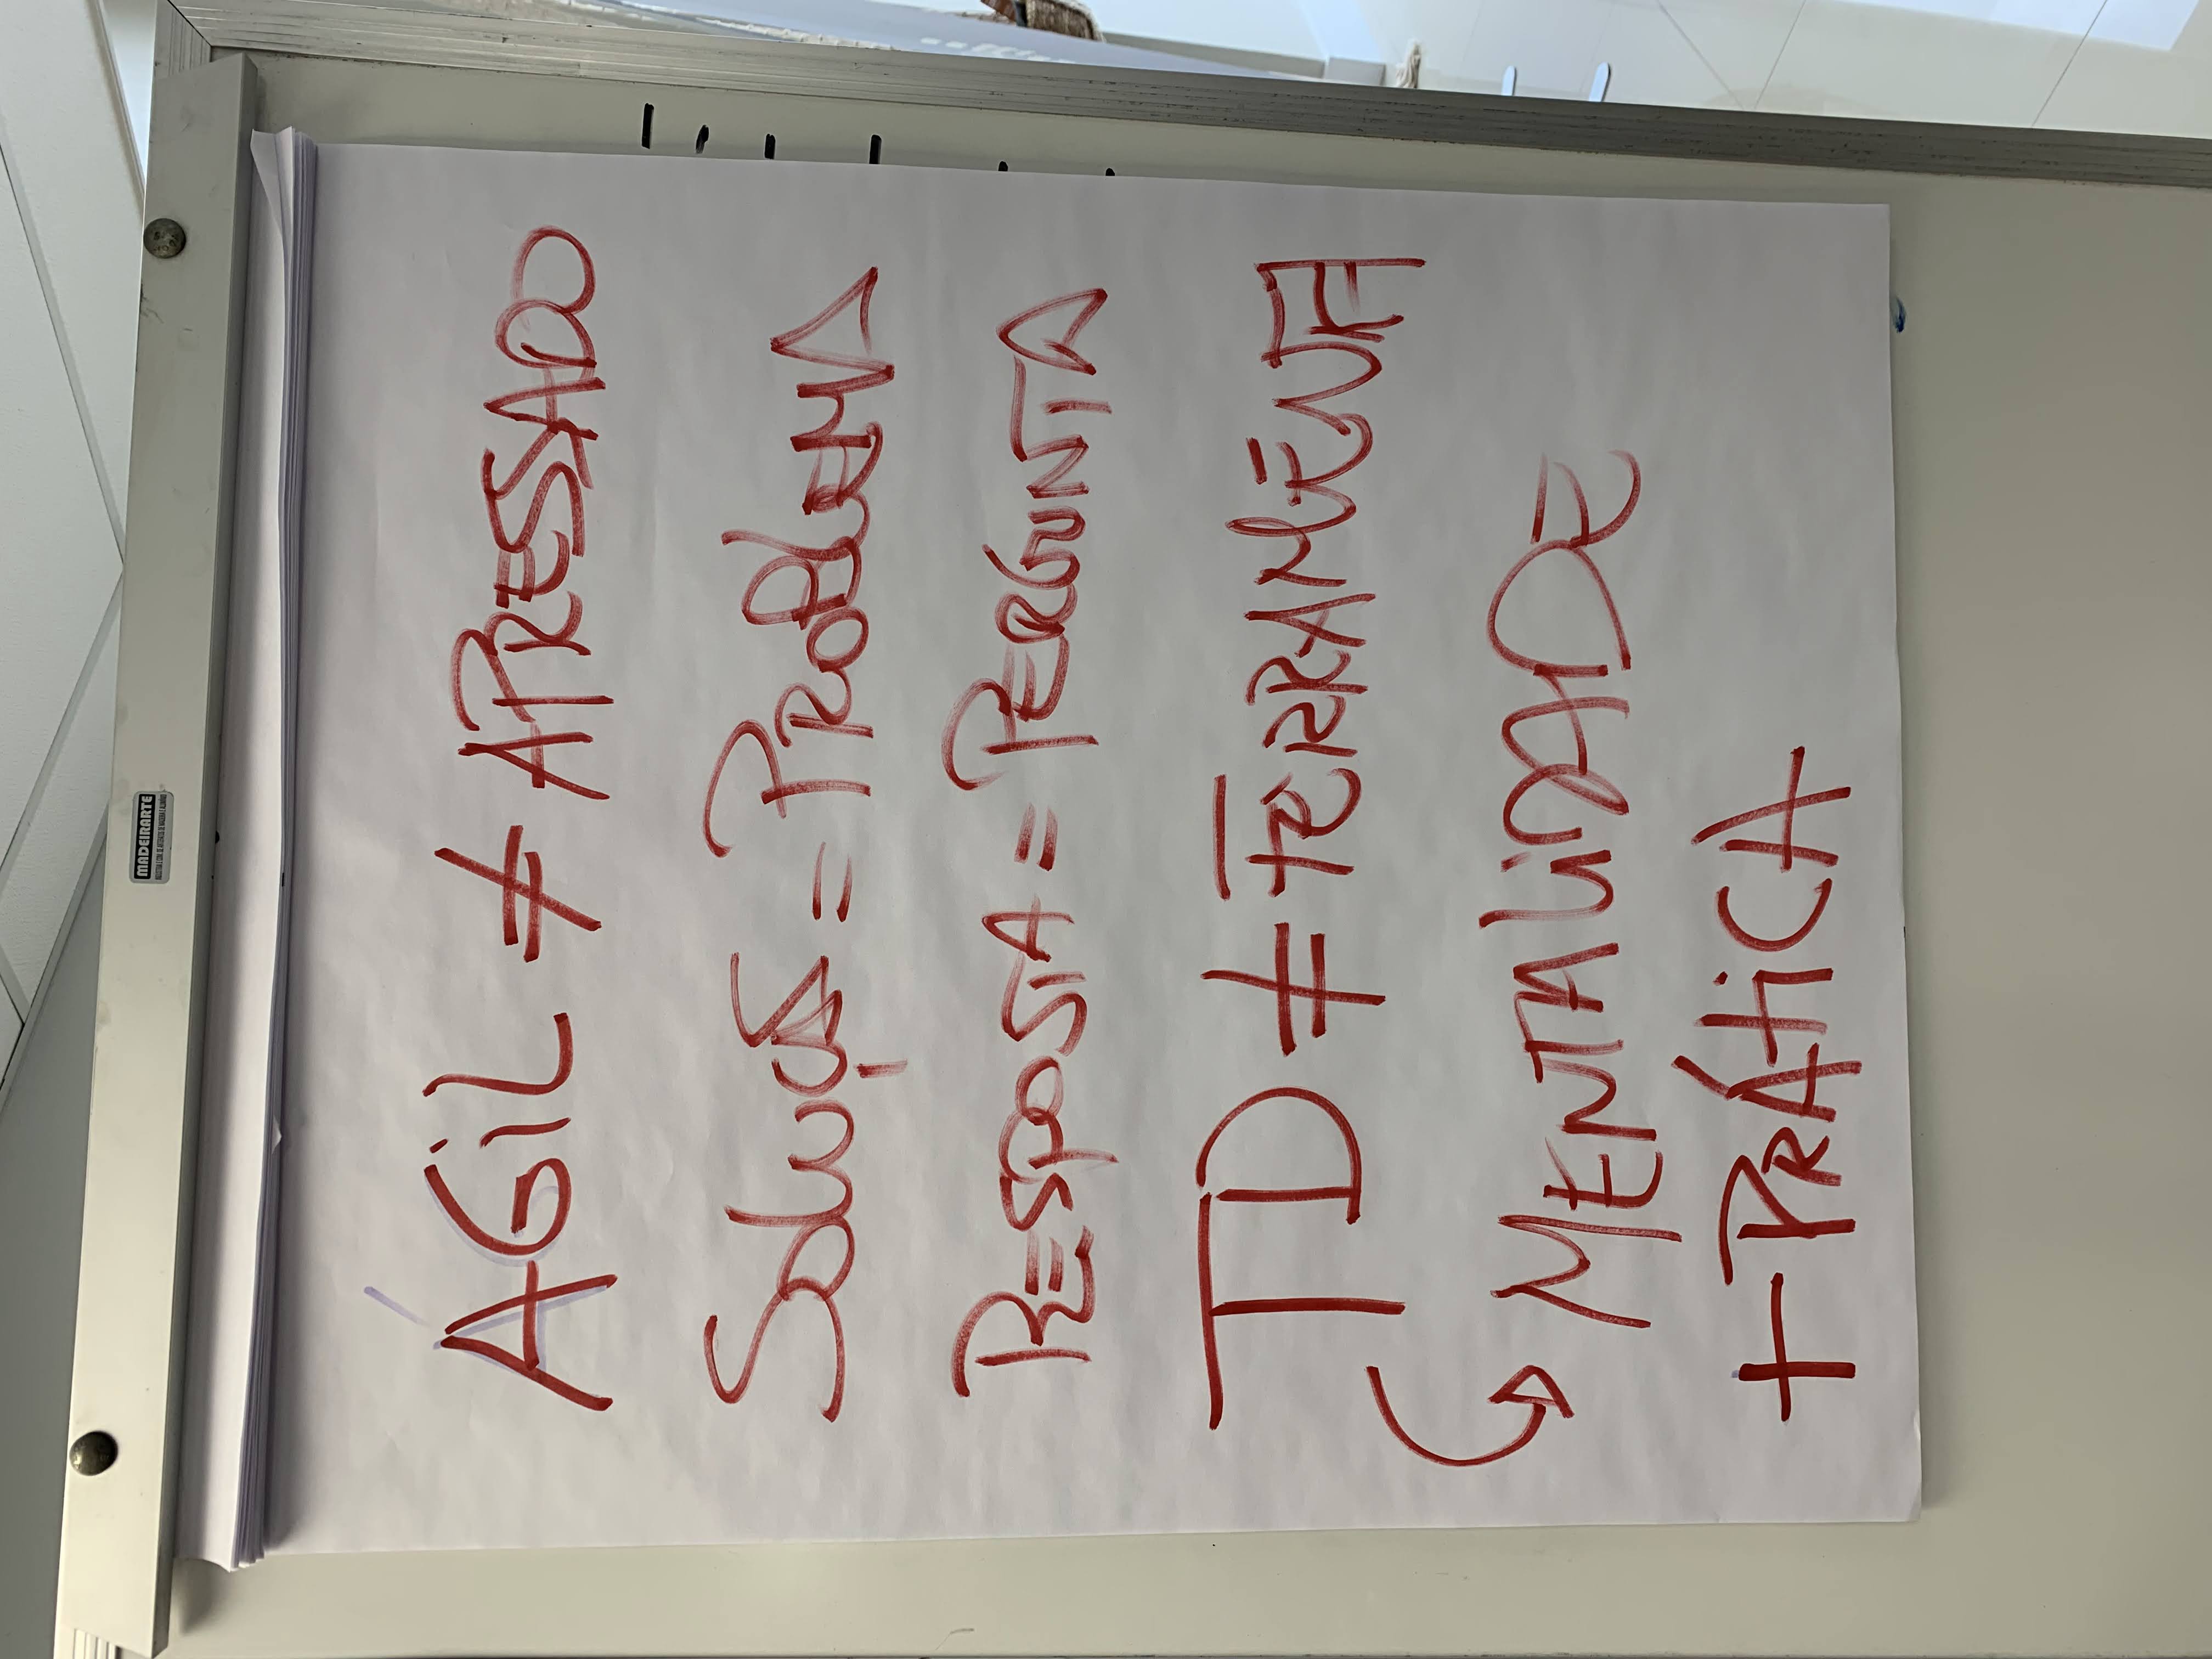 MADEIRARTE
ÁGIL ≠ APRESSADO
SOLUÇÃO = PROBLEMA
RESPOSTA = PERGUNTA
TD ≠ FERRAMENTA
↳ MENTALIDADE
+ PRÁTICA